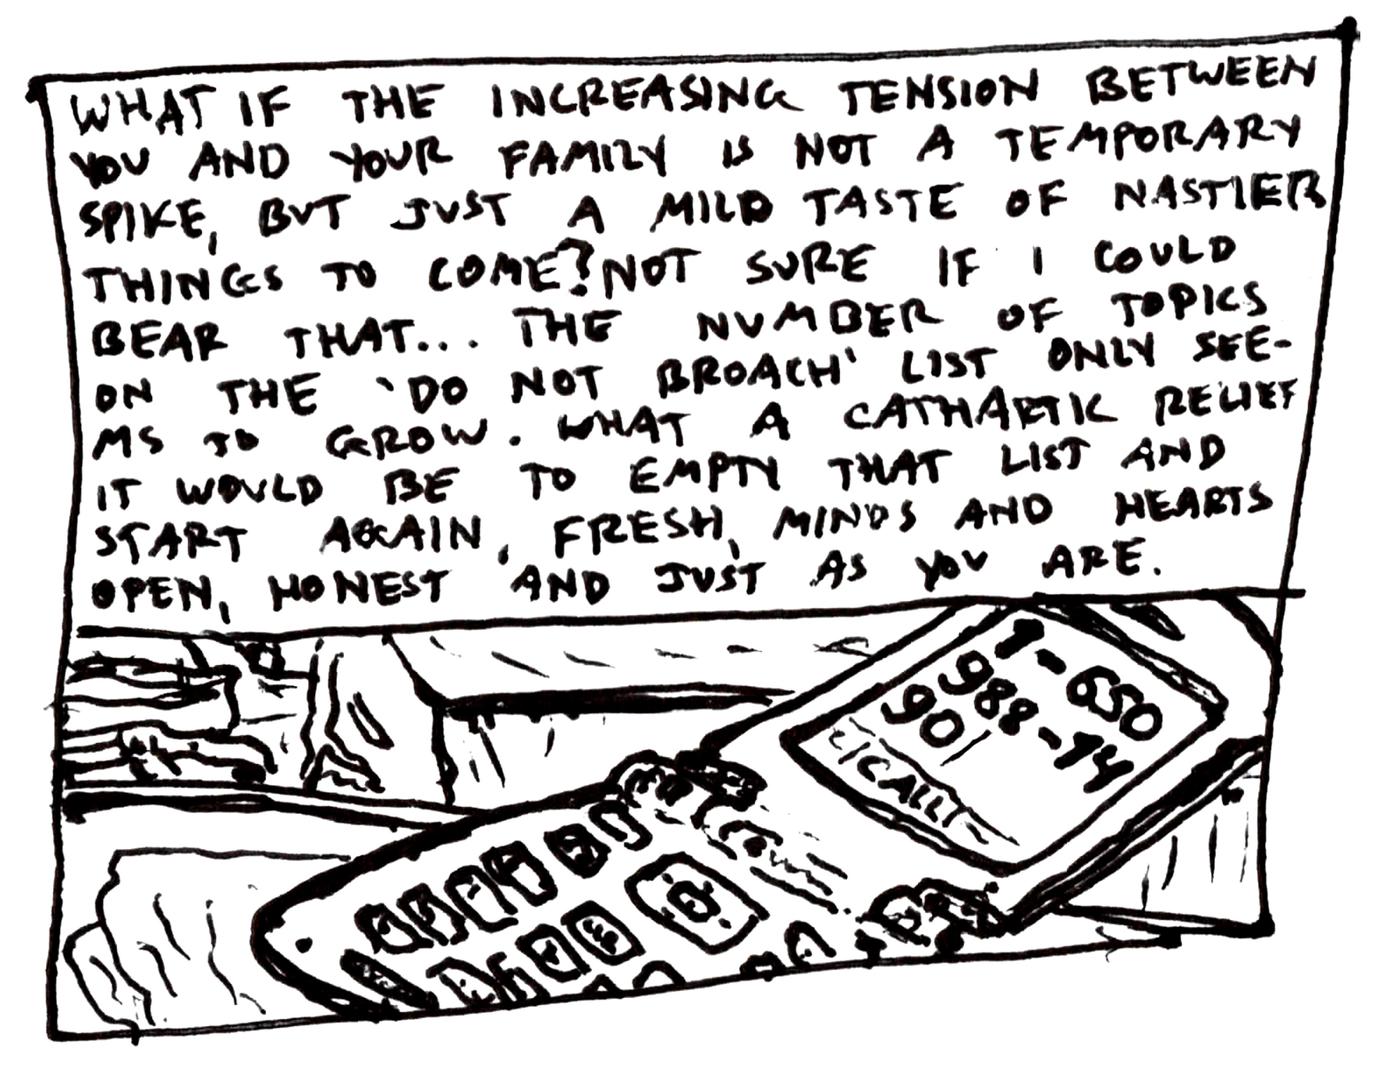 WHAT IF THE INCREASING TENSION BETWEEN
YOU AND YOUR FAMILY IS NOT A TEMPORARY
SPIKE, BUT JUST A MILD TASTE OF NASTIER
THINGS TO COME? NOT SURE IF I COULD
BEAR THAT... THE NUMBER OF TOPICS
ON THE 'DO NOT BROACH' LIST ONLY SEE-
MS TO GROW. WHAT A CATHARTIC RELIEF
IT WOULD BE TO EMPTY THAT LIST AND
START AGAIN, FRESH, MINDS AND HEARTS
OPEN, HONEST AND JUST AS YOU ARE.
1-650
988-14
90
CALL